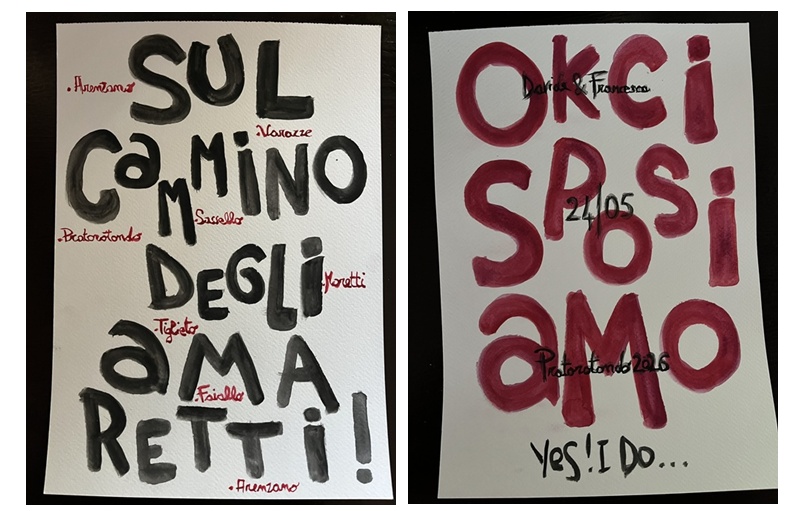 SUL
.Arenzano
.Varazze
CaMMiNO
.Sassello
.Pratorotondo
DEGLi
.Moretti
.Tiglieto
aMA
.Faiallo
REττi!
.Arenzano
OKCi
Davide & Francesca
SPOSi
24/05
aMO
Pratorotondo 2026
YeS! I DO...